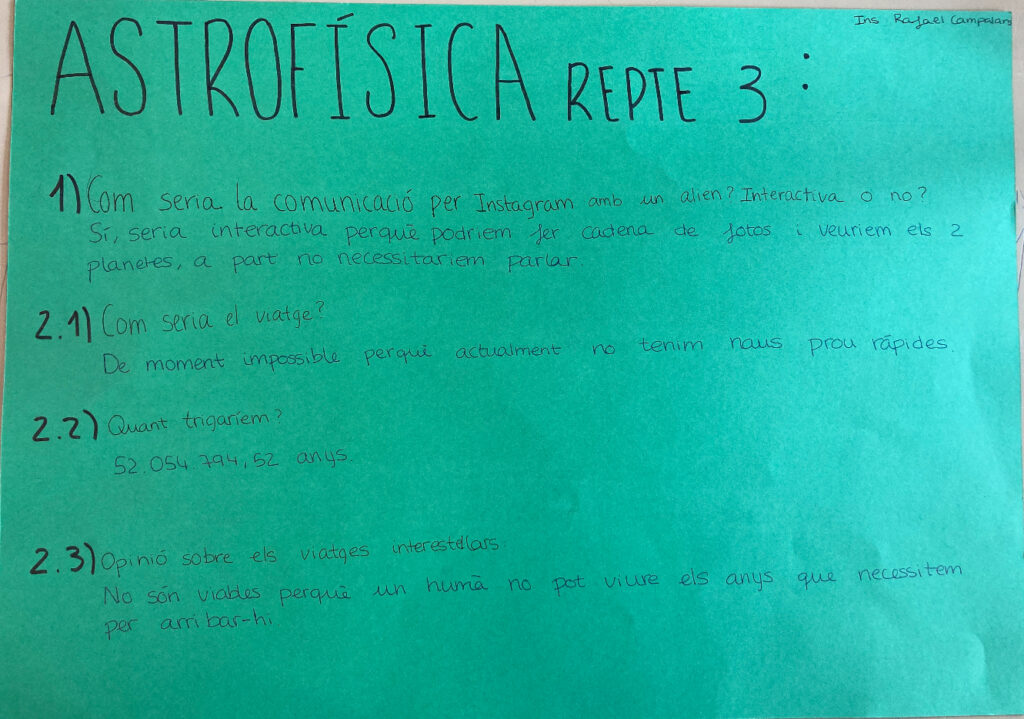 Ins Rafael Campalans
ASTROFÍSICA REPTE 3 :
1) Com seria la comunicació per Instagram amb un alien? Interactiva o no?
Sí, seria interactiva perquè podriem fer cadena de fotos i veuriem els 2
planetes, a part no necessitariem parlar.
2.1) Com seria el viatge?
De moment impossible perquè actualment no tenim naus prou ràpides.
2.2) Quant trigaríem?
52.054.794,52 anys.
2.3) Opinió sobre els viatges interestel·lars.
No són viables perquè un humà no pot viure els anys que necessitem
per arribar-hi.